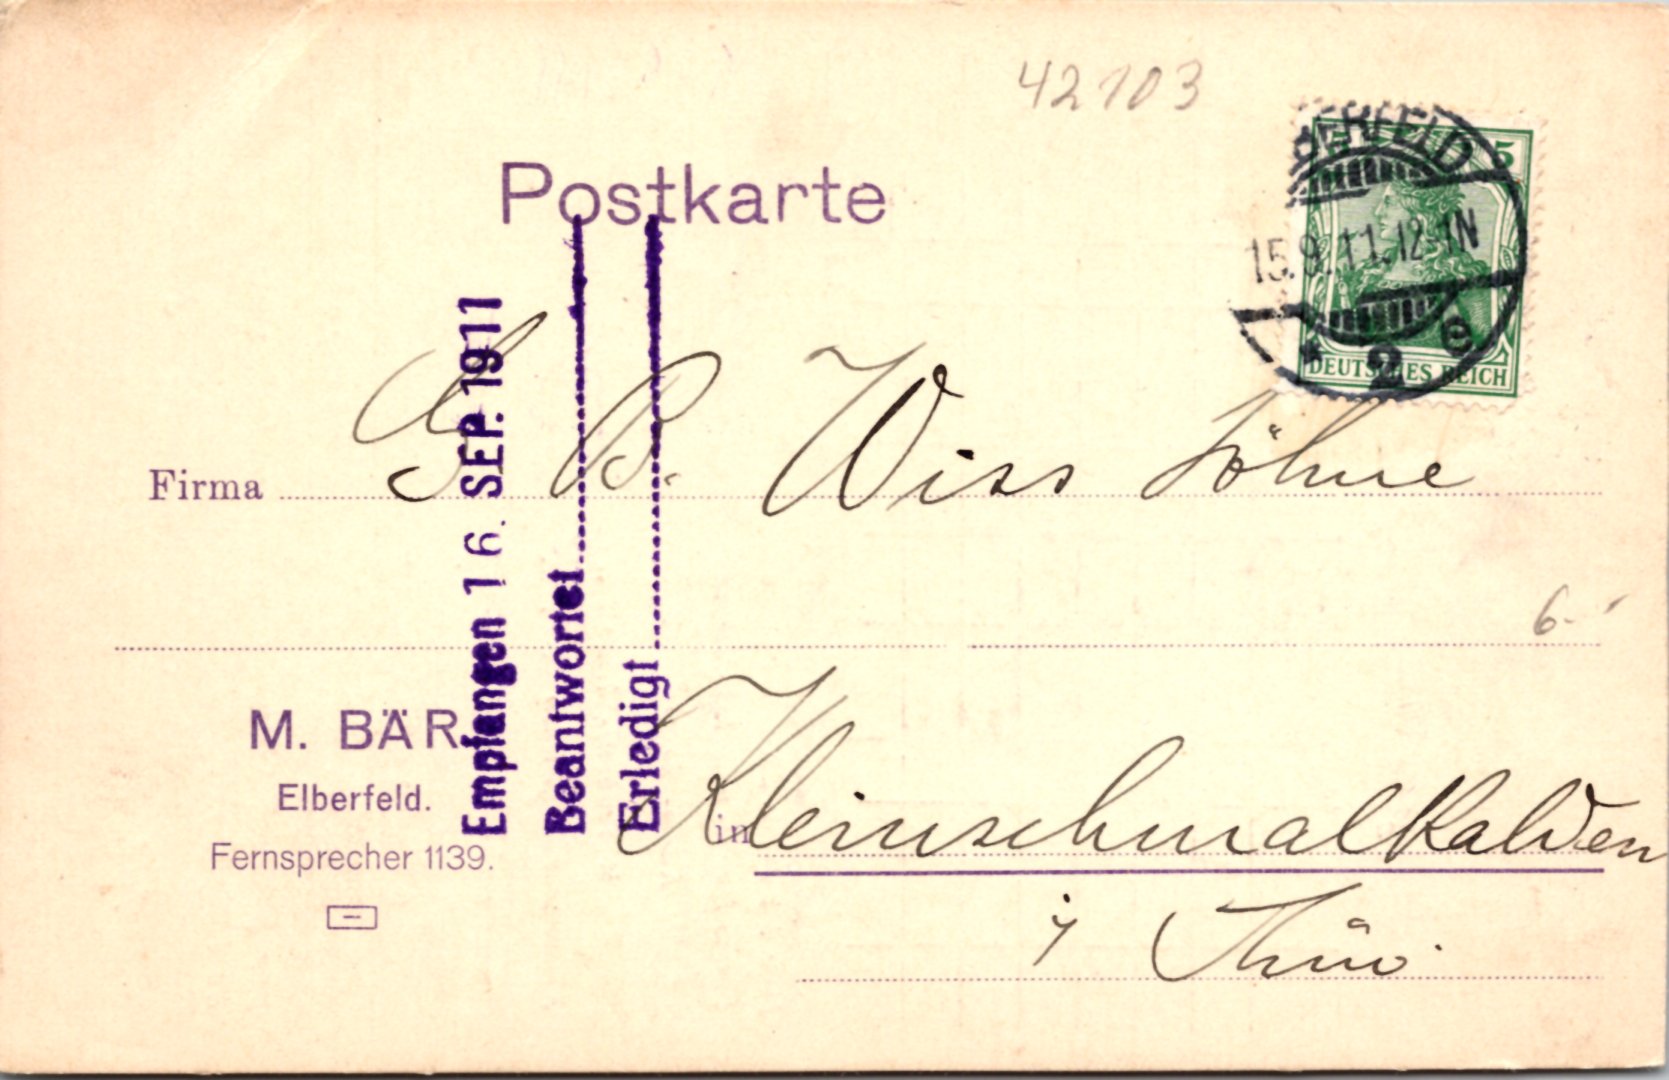 42103
Postkarte
ERFELD
5
15.9.11.12-1N
* 2 e
DEUTSCHES REICH
Firma G. B. Wiss Söhne
6.-
Empfangen 16. SEP. 1911
Beantwortet
Erledigt
M. BÄR.
Elberfeld.
Fernsprecher 1139.
in Kleinschmalkalden
i Thür.